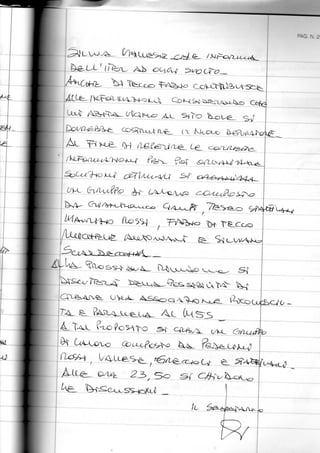 PAG. N. 2
SILVIA VALLESE CHE INFORMA
DELL'ITER AD OGNI SVOLTO_
ANCHE DI TECCO FABIO CONTRIBUISCE
ALLE INFORMAZIONI CONSIDERANDO CHE
LUI ABITA VICINO AL SITO DOVE SI
DOVREBBE COSTRUIRE IL NUOVO DEPURATORE_
AL FINE DI REPERIRE LE CORRETTE
INFORMAZIONI PER POI ORGANIZZARE
SOLUZIONI OTTIMALI SI ORGANIZZA
UN GRUPPO DI LAVORO COMPOSTO
DA GIANFRANCO
MAURIZIO ROSSI, FABIO DI TECCO
E SILVANO
ALLA PROSSIMA RIUNIONE SI
DISCUTERÀ DELLA POSSIBILITÀ DI
CREARE UNA ASSOCIAZIONE RICONOSCIU-
TA E PARALLELA AL M5S_
A TAL PROPOSITO SI CREA UN GRUPPO
DI LAVORO COMPOSTO DA
ROSSI, VALLESE,
ALLE ORE 23,50 SI CHIUDONO
LE DISCUSSIONI_
IL SEGRETARIO